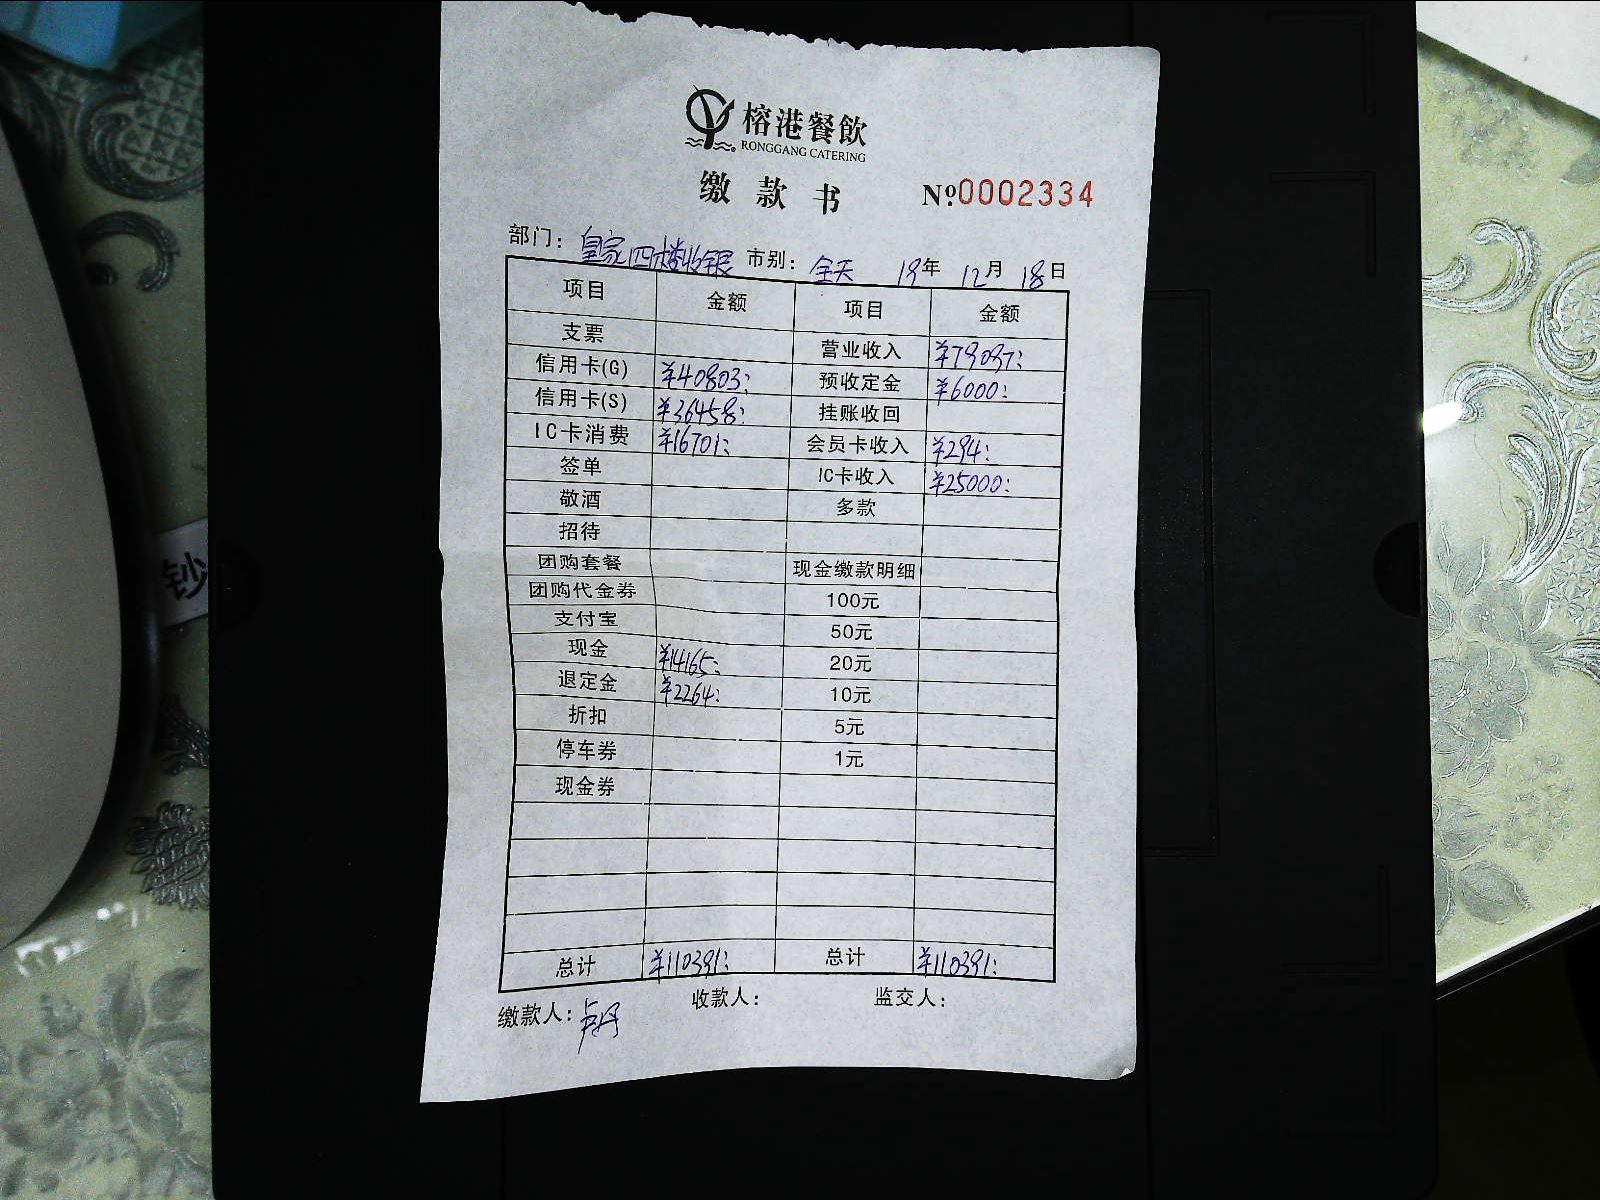 榕港餐飲
RONGGANG CATERING
缴款书 №0002334
部门：皇家四楼收银 市别：全天 19年 12月 18日
项目 金额 项目 金额
支票 营业收入 ¥79097：
信用卡(G) ¥40803： 预收定金 ¥6000：
信用卡(S) ¥36458： 挂账收回
IC卡消费 ¥16701： 会员卡收入 ¥294：
签单 IC卡收入 ¥25000：
敬酒 多款
招待
团购套餐 现金缴款明细
团购代金券 100元
支付宝 50元
现金 ¥14165： 20元
退定金 ¥2264： 10元
折扣 5元
停车券 1元
现金券
总计 ¥110391： 总计 ¥110391：
缴款人：卢丹 收款人： 监交人：
钞